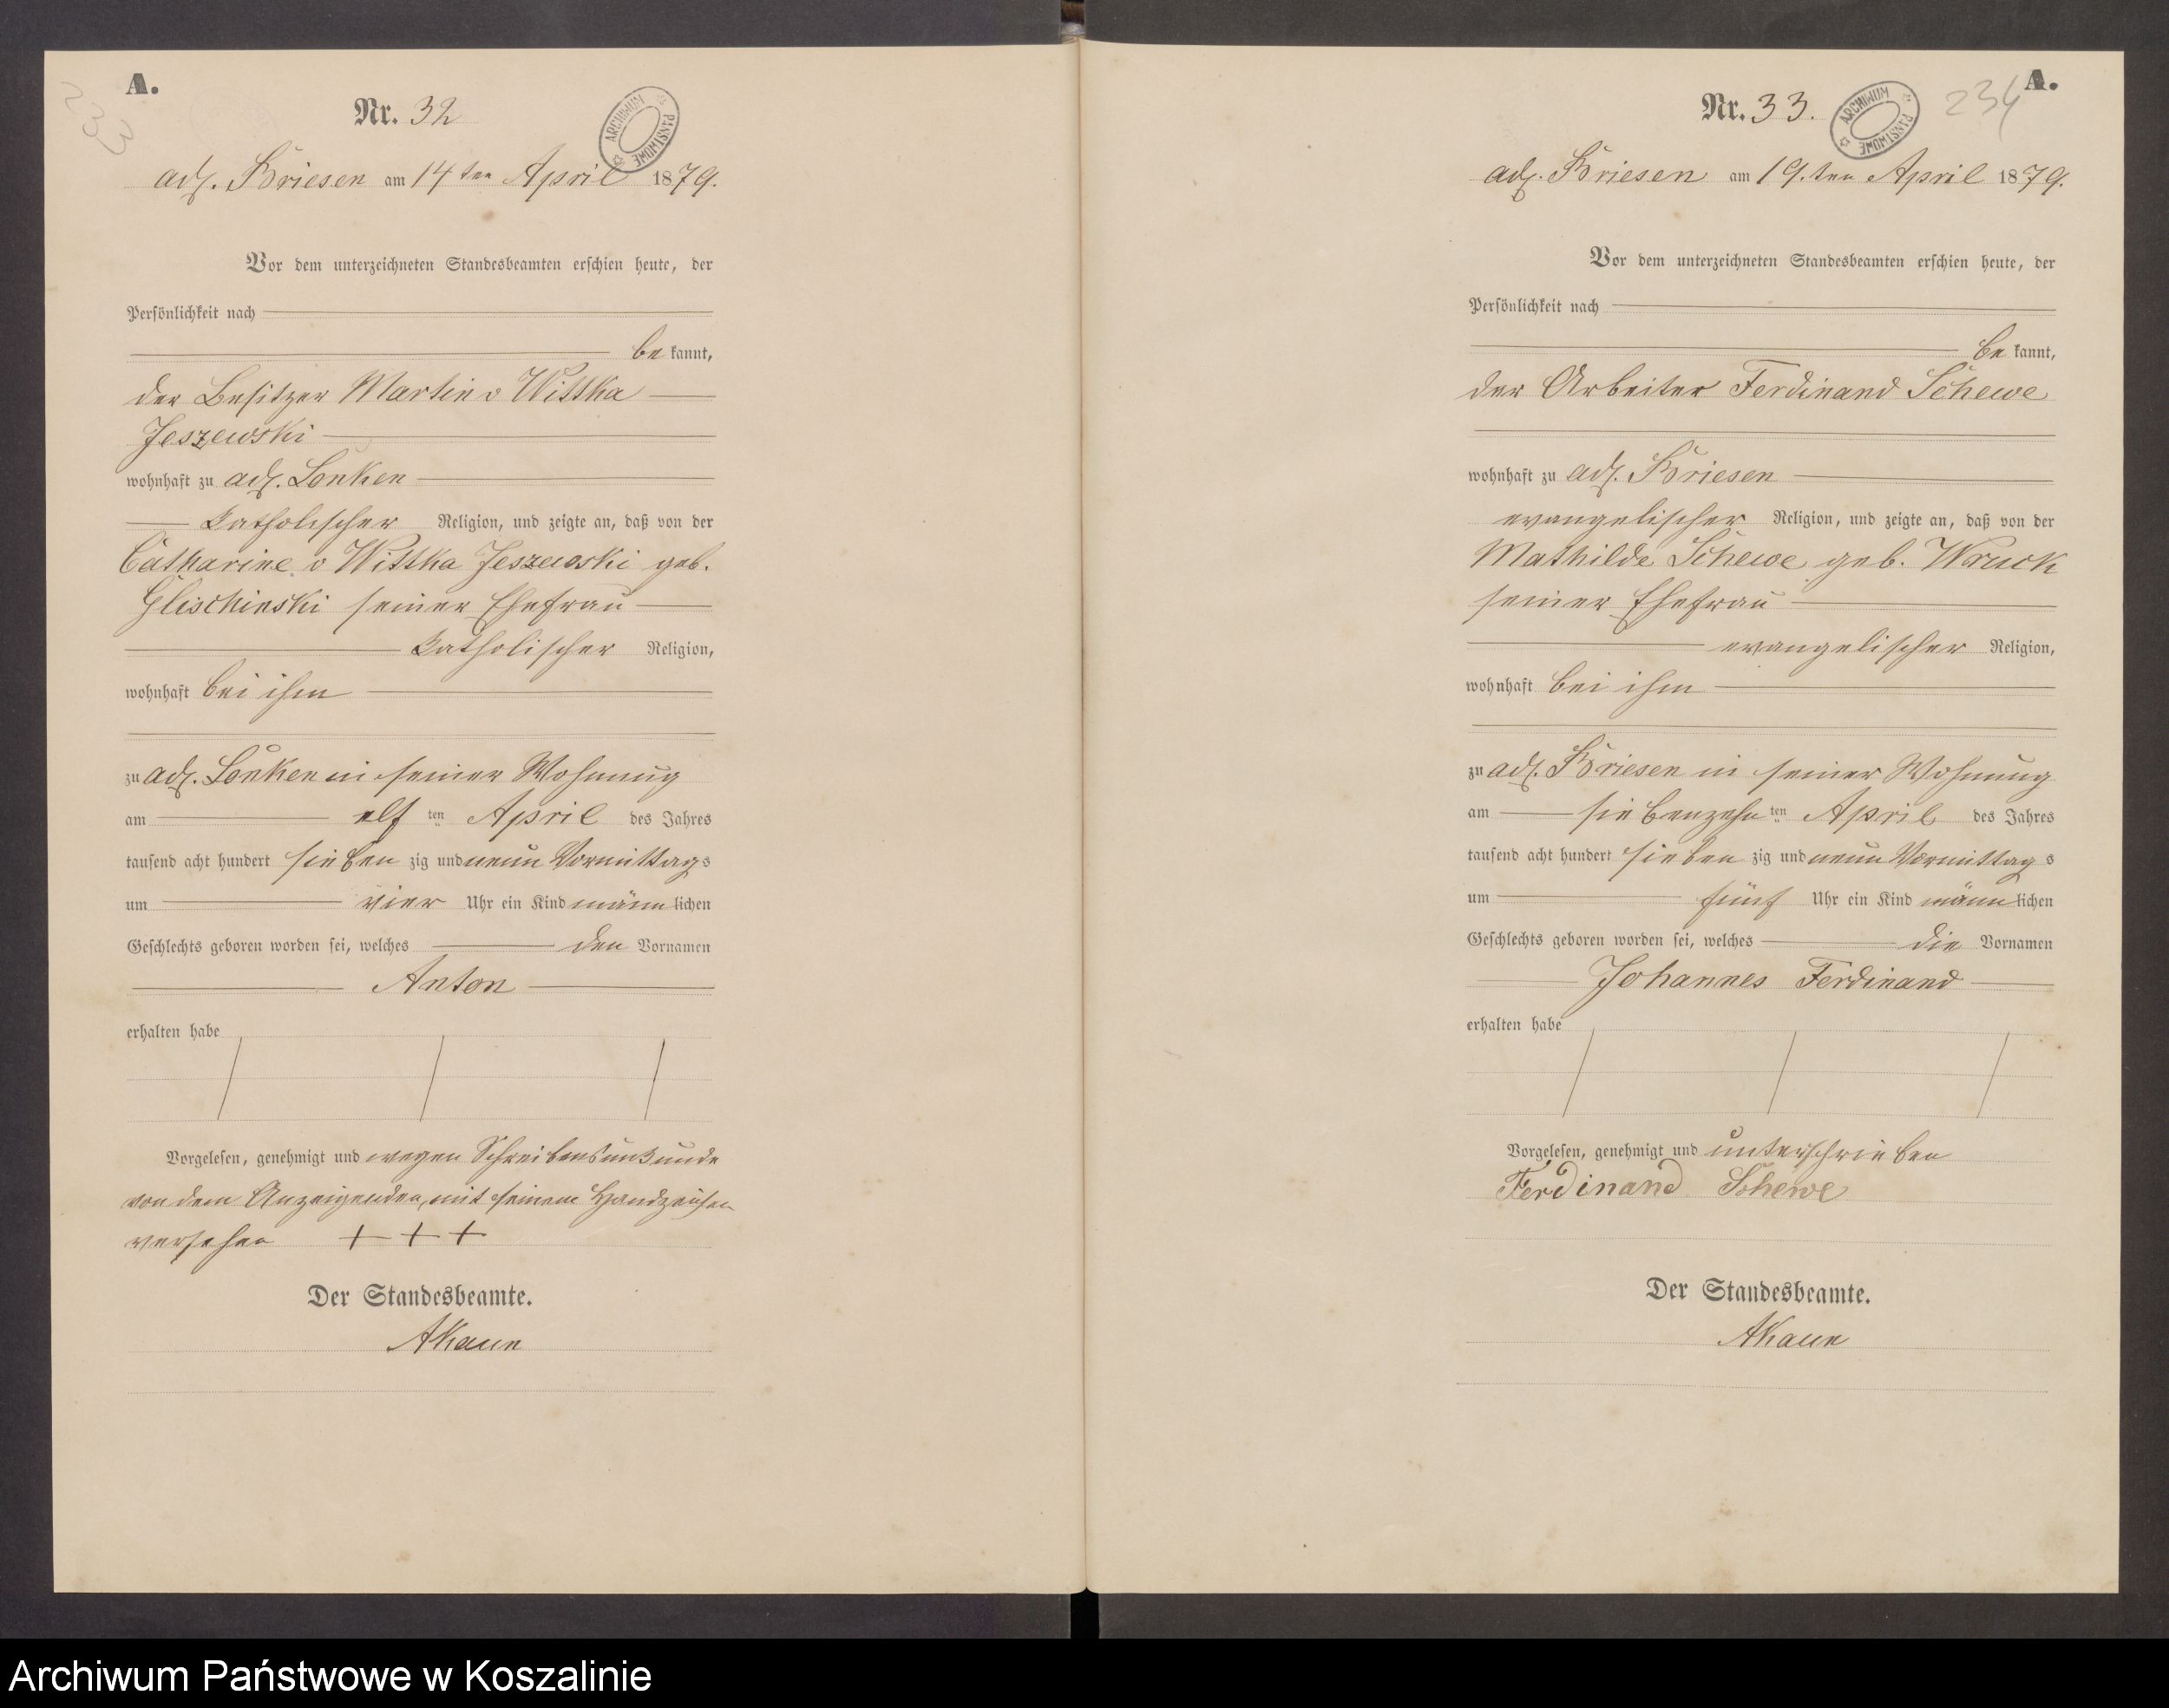 A.
233
Nr. 32
ARCHIWUM PAŃSTWOWE
adl. Briesen am 14ten April 1879.
Vor dem unterzeichneten Standesbeamten erschien heute, der
Persönlichkeit nach
bekannt,
der Besitzer Martin v Wittka
Jeszewski
wohnhaft zu adl. Lonken
katholischer Religion, und zeigte an, daß von der
Catharine v Wittka Jeszewski geb.
Glischinski seiner Ehefrau
katholischer Religion,
wohnhaft bei ihm
zu adl. Lonken in seiner Wohnung
am elf ten April des Jahres
tausend acht hundert siebenzig und neun Vormittags
um vier Uhr ein Kind männlichen
Geschlechts geboren worden sei, welches den Vornamen
Anton
erhalten habe
Vorgelesen, genehmigt und wegen Schreibensunkunde
von dem Anzeigenden, mit seinem Handzeichen
versehen + + +
Der Standesbeamte.
AKaun
A.
234
Nr. 33.
ARCHIWUM PAŃSTWOWE
adl. Briesen am 19.ten April 1879.
Vor dem unterzeichneten Standesbeamten erschien heute, der
Persönlichkeit nach
bekannt,
der Arbeiter Ferdinand Schewe
wohnhaft zu adl. Briesen
evangelischer Religion, und zeigte an, daß von der
Mathilde Schewe geb. Wruck
seiner Ehefrau
evangelischer Religion,
wohnhaft bei ihm
zu adl. Briesen in seiner Wohnung
am siebenzehn ten April des Jahres
tausend acht hundert siebenzig und neun Vormittags
um fünf Uhr ein Kind männlichen
Geschlechts geboren worden sei, welches die Vornamen
Johannes Ferdinand
erhalten habe
Vorgelesen, genehmigt und unterschrieben
Ferdinand Schewe
Der Standesbeamte.
AKaun
Archiwum Państwowe w Koszalinie